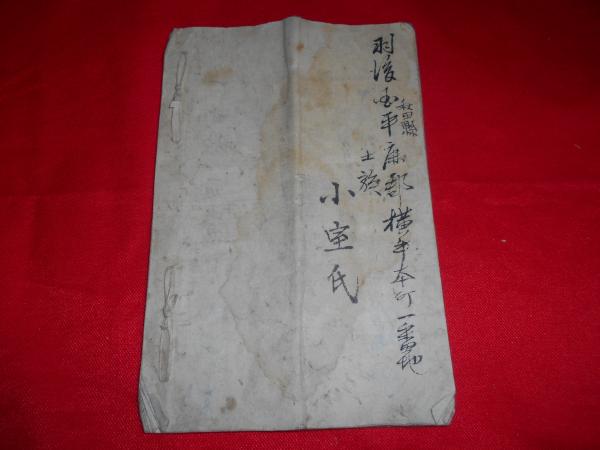 羽後国平鹿郡横手本町一番地
秋田縣
士族
小室氏